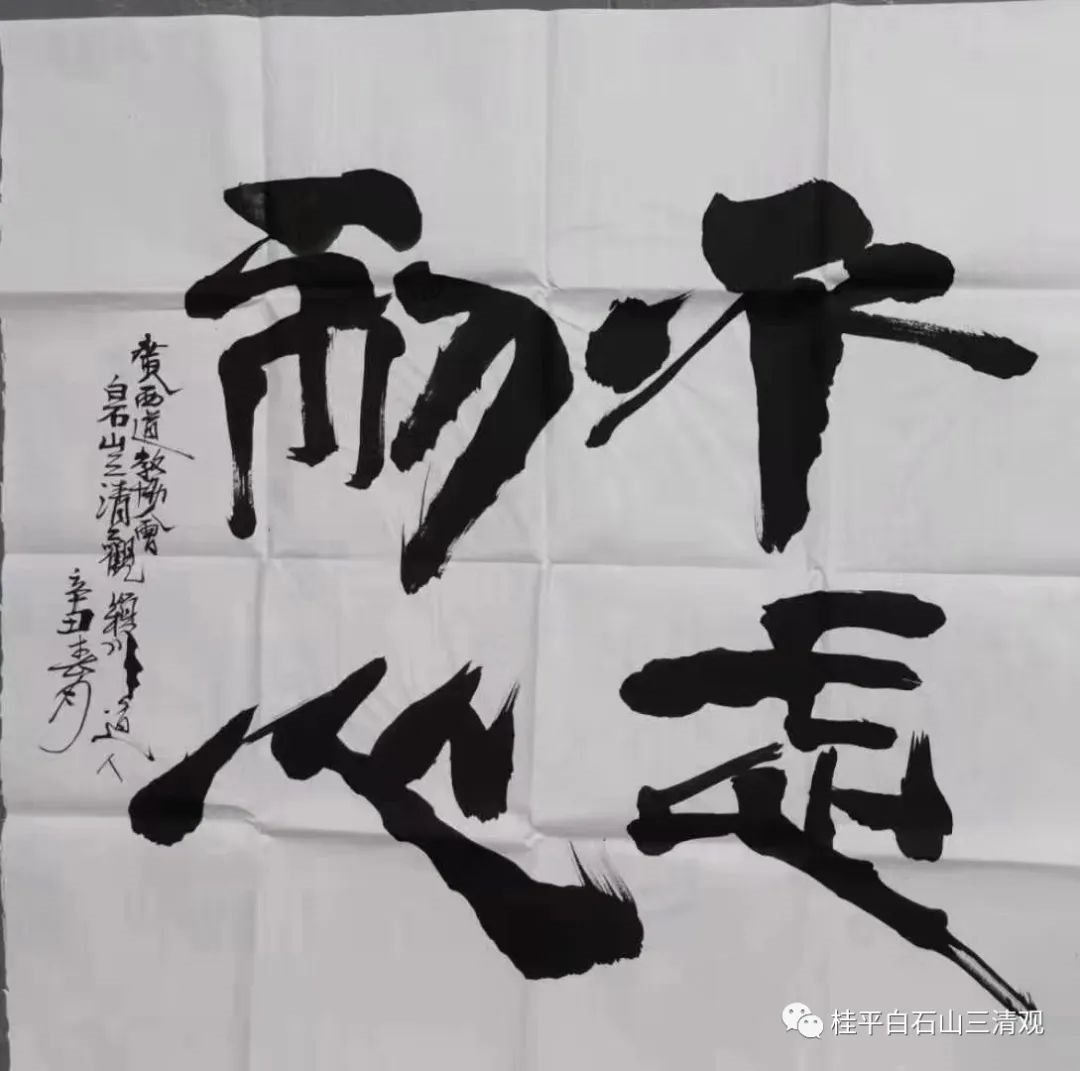 不忘
初心
廣西道教協會
白石山三清觀 道人
辛丑春月
桂平白石山三清观